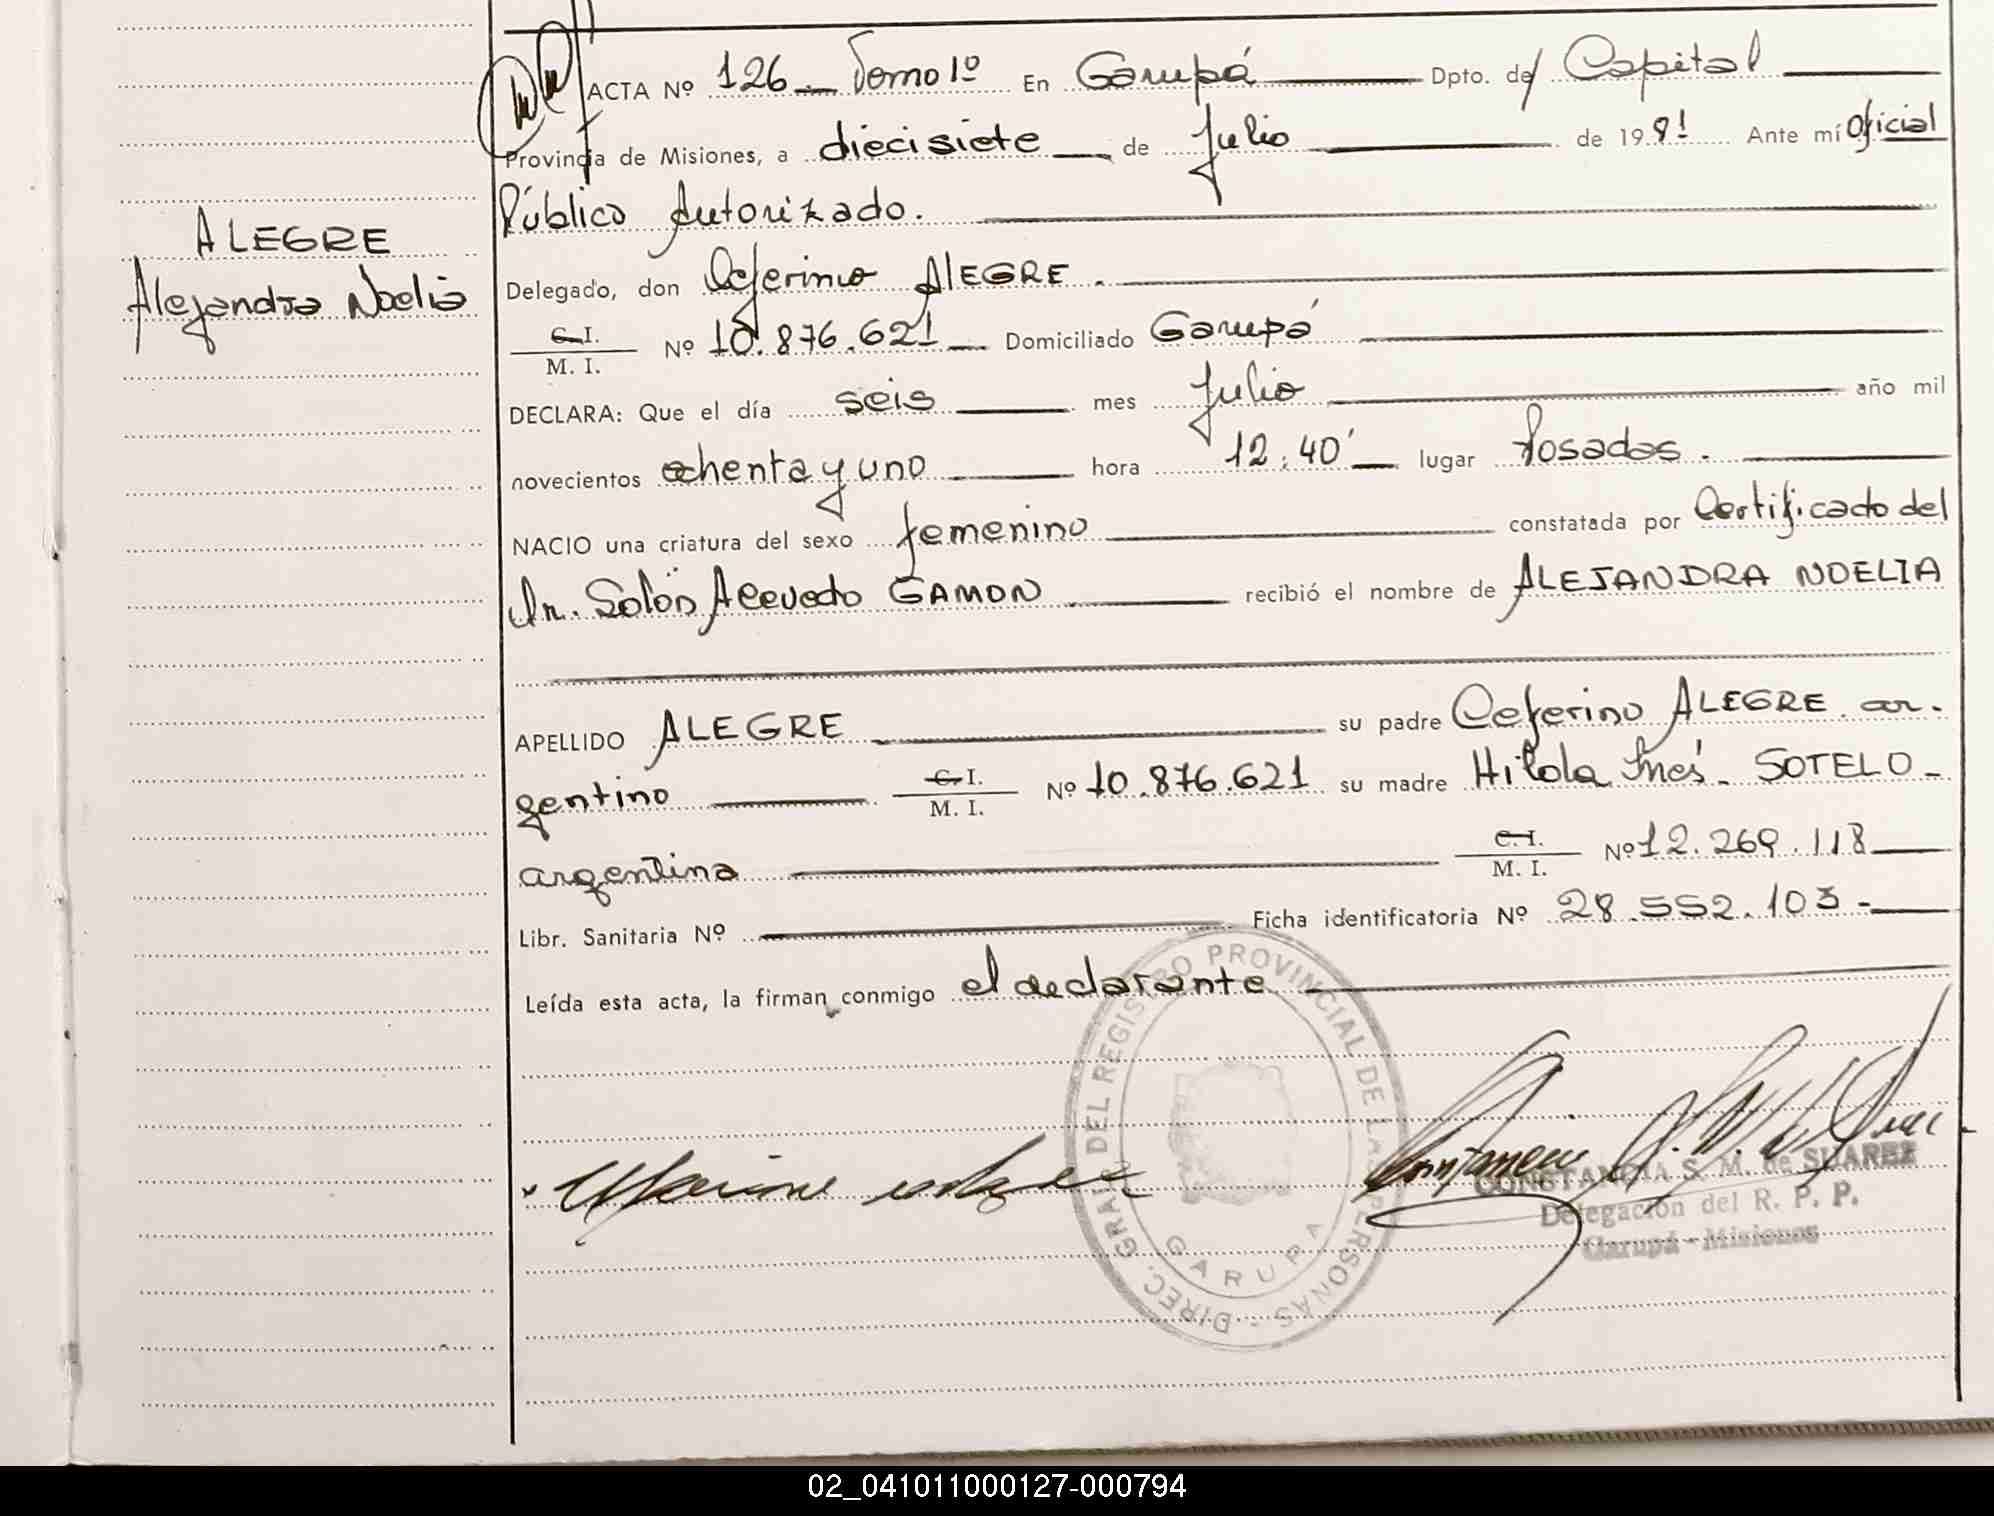 ACTA Nº 126 Tomo 1º En Garupá Dpto. de Capital
Provincia de Misiones, a diecisiete de Julio de 1981 Ante mí Oficial
Público Autorizado.
ALEGRE
Alejandra Noelia
Delegado, don Ceferino ALEGRE.
C.I.
M. I. Nº 10.876.621 Domiciliado Garupá
DECLARA: Que el día seis mes Julio año mil
novecientos ochenta y uno hora 12.40' lugar Posadas.
NACIO una criatura del sexo femenino constatada por Certificado del
Dr. Solón Acevedo GAMON recibió el nombre de ALEJANDRA NOELIA
APELLIDO ALEGRE su padre Ceferino ALEGRE ar-
gentino C.I. M. I. Nº 10.876.621 su madre Hilda Inés SOTELO-
argentina C.I. M. I. Nº 12.269.118
Libr. Sanitaria Nº Ficha identificatoria Nº 28.552.103-
Leída esta acta, la firman conmigo el declarante
DIREC. GRAL. DEL REGISTRO PROVINCIAL DE LAS PERSONAS -
GARUPA
CONSTANCIA S. M. de SUAREZ
Delegación del R. P. P.
Garupá - Misiones
02_041011000127-000794